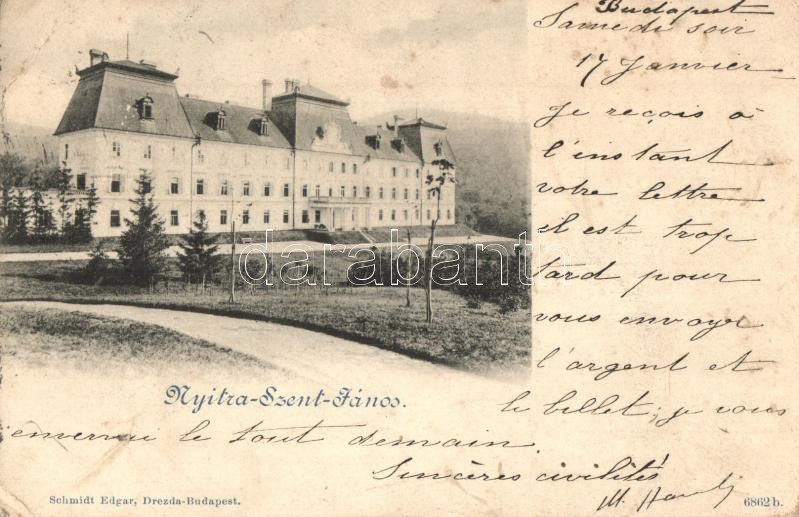 Budapest
Samedi soir
17 Janvier
Je reçois à
l'instant
votre lettre
il est trop
tard pour
vous envoyer
l'argent et
le billet; je vous
enverrai le tout demain.
Sincères civilités
M.
darabanth.com
Nyitra-Szent-János.
Schmidt Edgar, Drezda-Budapest.
6862 b.